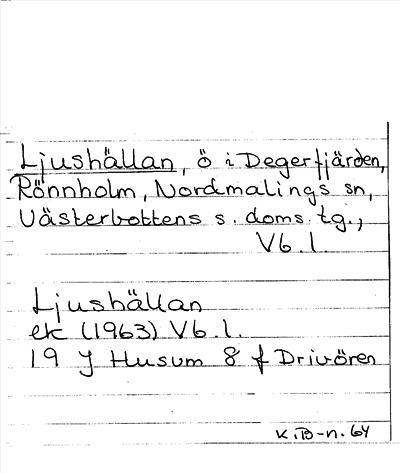 Ljushällan, ö i Degerfjärden,
Rönnholm, Nordmalings sn,
Västerbottens s. doms. tg.,
Vb. l.
Ljushällan
ek (1963) Vb. l.
19 J Husum 8 f Drivören
K.B-n. 64